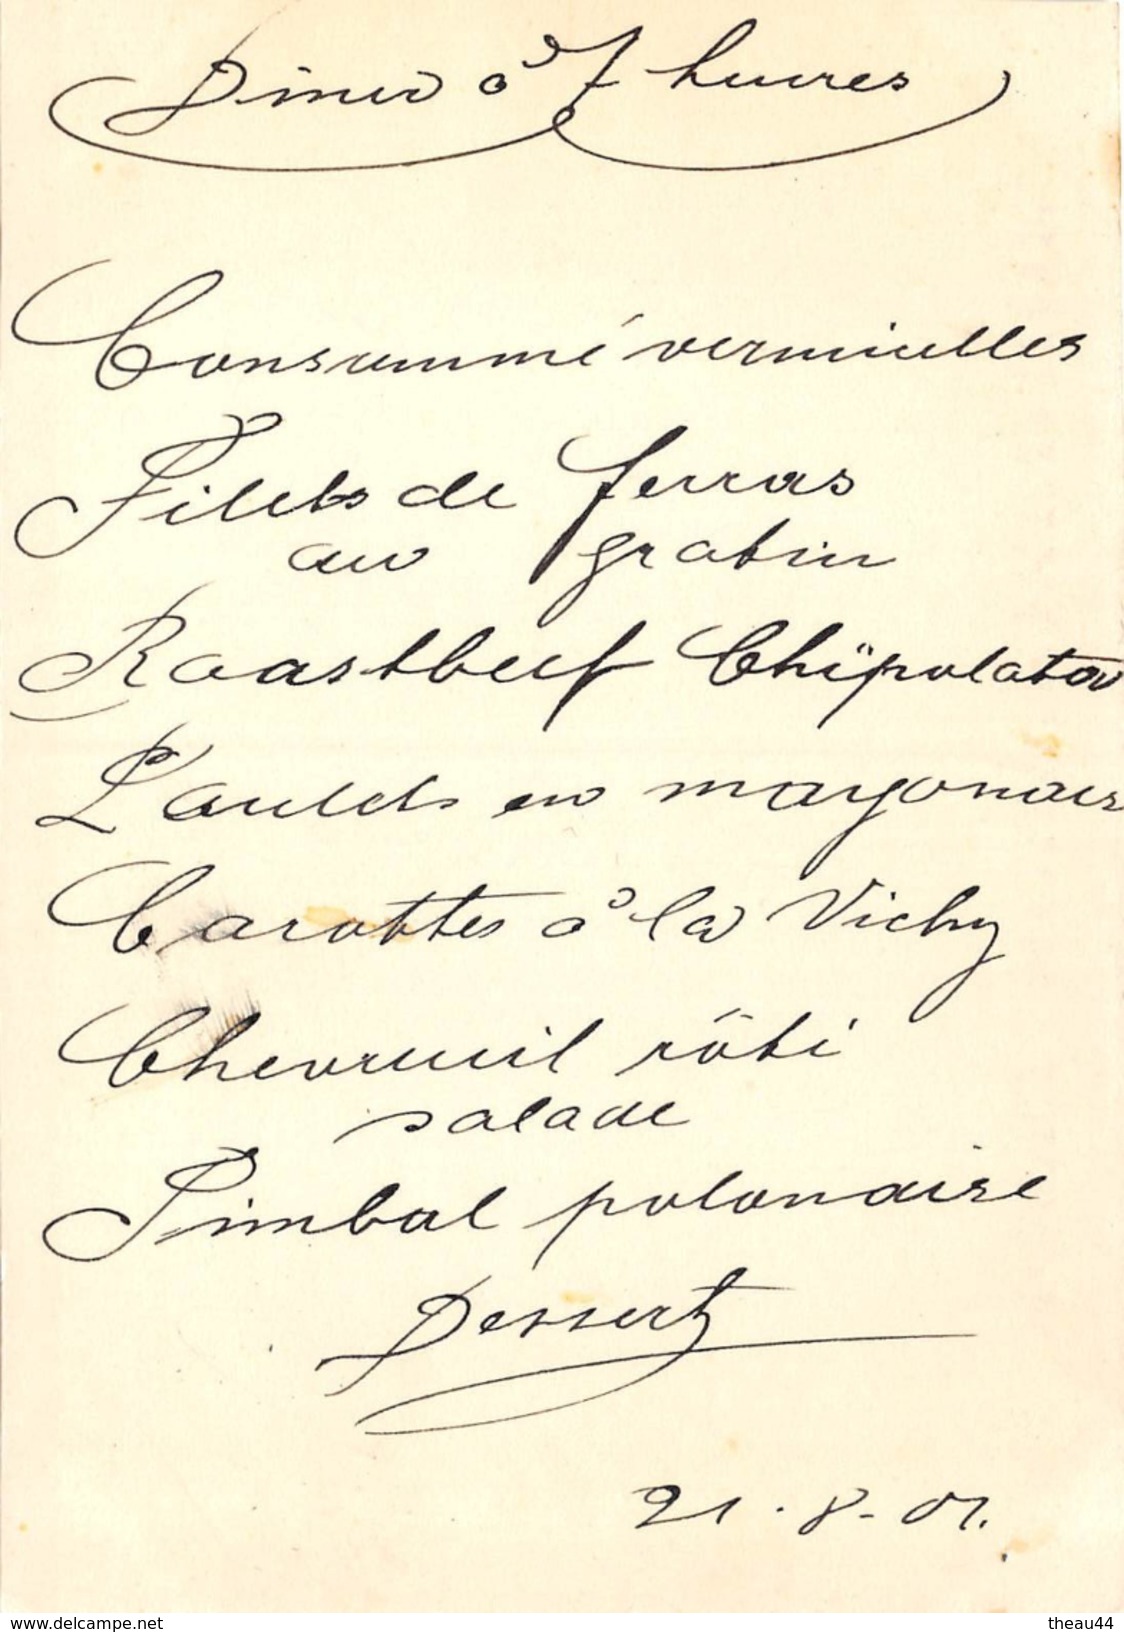 Diner à 7 heures
Consummé vermicelles
Filets de ferras
au gratin
Roastbeef Chipolata
Poulets en mayonais
Carottes à la Vichy
Chevreuil rôti
salade
Timbal polonaise
Dessert
21.8-01.
www.delcampe.net
theau44